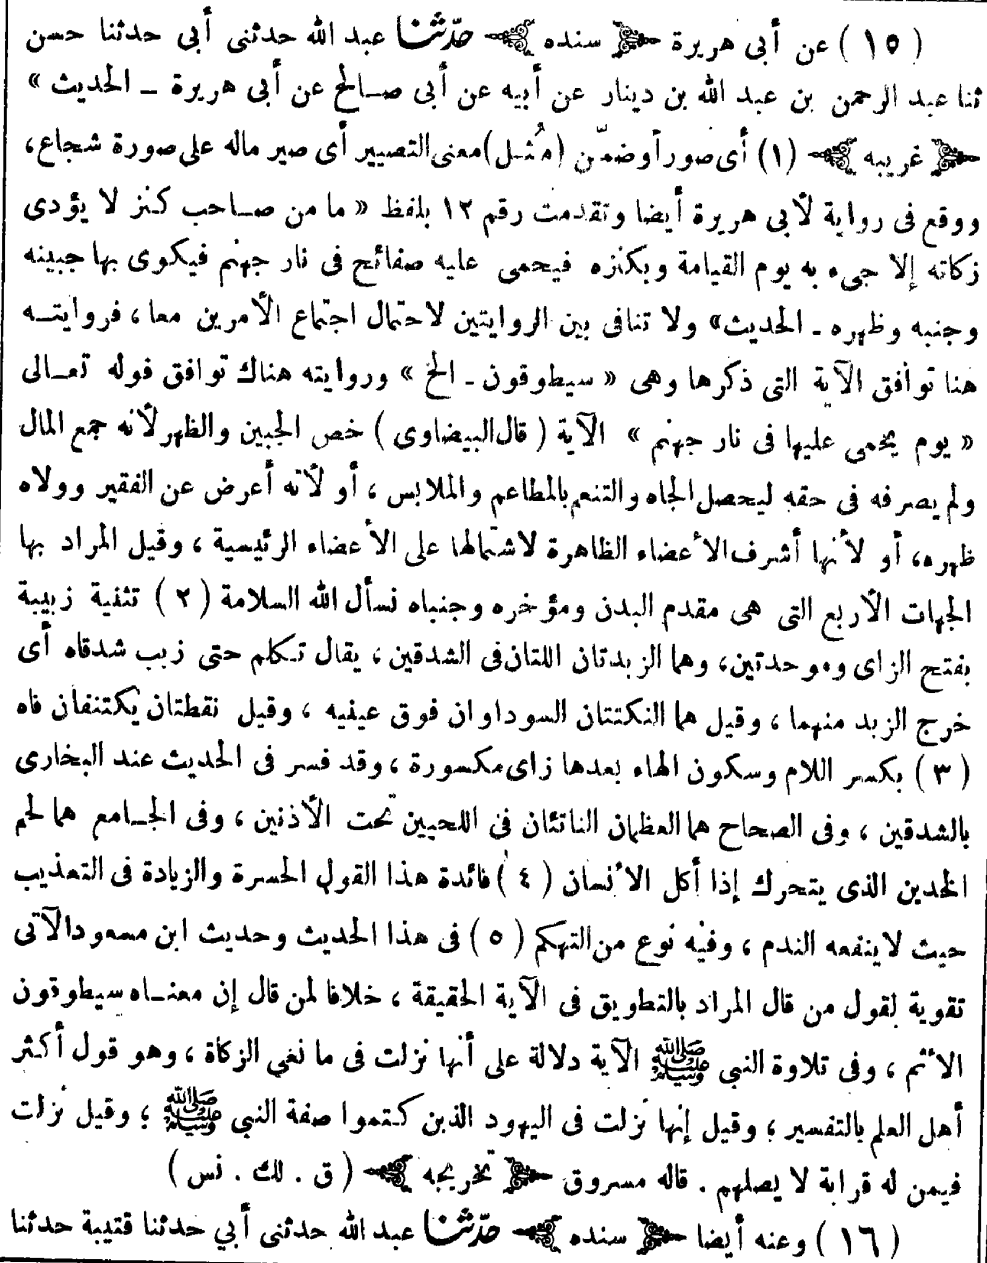 ( ١٥ ) عن أبى هريرة سنده حدّثنا عبد الله حدثنى أبى حدثنا حسن
ثنا عبد الرحمن بن عبد الله بن دينار عن أبيه عن أبى صالح عن أبى هريرة ـ الحديث »
غريبه (١) أى صور أو ضمّن (مُثل) معنى التصيير أى صير ماله على صورة شجاع،
ووقع فى رواية لأبى هريرة أيضا وتقدمت رقم ١٢ بلفظ « ما من صاحب كنز لا يؤدى
زكاته إلا جىء به يوم القيامة وبكنزه فيحمى عليه صفائح فى نار جهنم فيكوى بها جبينه
وجنبه وظهره ـ الحديث» ولا تنافى بين الروايتين لاحتمال اجتماع الأمرين معا ، فروايته
هنا توافق الآية التى ذكرها وهى « سيطوقون ـ الخ » وروايته هناك توافق قوله تعالى
« يوم يحمى عليها فى نار جهنم » الآية ( قال البيضاوى ) خص الجبين والظهر لأنه جمع المال
ولم يصرفه فى حقه ليحصل الجاه والتنعم بالمطاعم والملابس ، أو لأنه أعرض عن الفقير وولاه
ظهره، أو لأنها أشرف الأعضاء الظاهرة لاشتمالها على الأعضاء الرئيسية ، وقيل المراد بها
الجهات الأربع التى هى مقدم البدن ومؤخره وجنباه نسأل الله السلامة ( ٢ ) تثنية زبيبة
بفتح الزاى وموحدتين، وهما الزبدتان اللتان فى الشدقين ، يقال تكلم حتى زبب شدقاه أى
خرج الزبد منهما ، وقيل هما النكتتان السوداوان فوق عينيه ، وقيل نقطتان يكتنفان فاه
( ٣ ) بكسر اللام وسكون الهاء بعدها زاى مكسورة ، وقد فسر فى الحديث عند البخارى
بالشدقين ، وفى الصحاح هما العظمان الناتئان فى اللحيين تحت الأذنين ، وفى الجامع هما لحم
الخدين الذى يتحرك إذا أكل الأنسان ( ٤ ) فائدة هذا القول الحسرة والزيادة فى التعذيب
حيث لاينفعه الندم ، وفيه نوع من التهكم ( ٥ ) فى هذا الحديث وحديث ابن مسعود الآتى
تقوية لقول من قال المراد بالتطويق فى الآية الحقيقة ، خلافا لمن قال إن معناه سيطوقون
الأثم ، وفى تلاوة النبى ﷺ الآية دلالة على أنها نزلت فى مانعي الزكاة ، وهو قول أكثر
أهل العلم بالتفسير ؛ وقيل إنها نزلت فى اليهود الذين كتموا صفة النبى ﷺ ؛ وقيل نزلت
فيمن له قرابة لا يصلهم . قاله مسروق تخريجه ( ق . لك . نس )
( ١٦ ) وعنه أيضا سنده حدّثنا عبد الله حدثنى أبي حدثنا قتيبة حدثنا